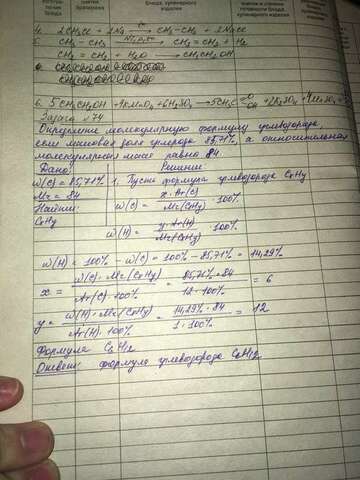 4. 2CH3Cl + 2Na → CH3-CH3 + 2NaCl
5. CH3-CH3 → CH2=CH2 + H2
CH2=CH2 + H2O → CH3CH2OH
6. 5CH3CH2OH + 4KMnO4 + 6H2SO4 → 5CH3C
Задача №74
Определите молекулярную формулу углеводорода
если массовая доля углерода 85,71%, а относительная
молекулярная масса равна 84
Дано: Решение:
w(C) = 85,71% 1. Пусть формула углеводорода CxHy
Mr = 84
Найти: w(C) = x·Ar(C) / Mr(CxHy) · 100%
CxHy
w(H) = y·Ar(H) / Mr(CxHy) · 100%
w(H) = 100% - w(C) = 100% - 85,71% = 14,29%
x = w(C)·Mr(CxHy) / Ar(C)·100% = 85,71%·84 / 12·100% = 6
y = w(H)·Mr(CxHy) / Ar(H)·100% = 14,29%·84 / 1·100% = 12
Формула C6H12
Ответ: формула углеводорода C6H12